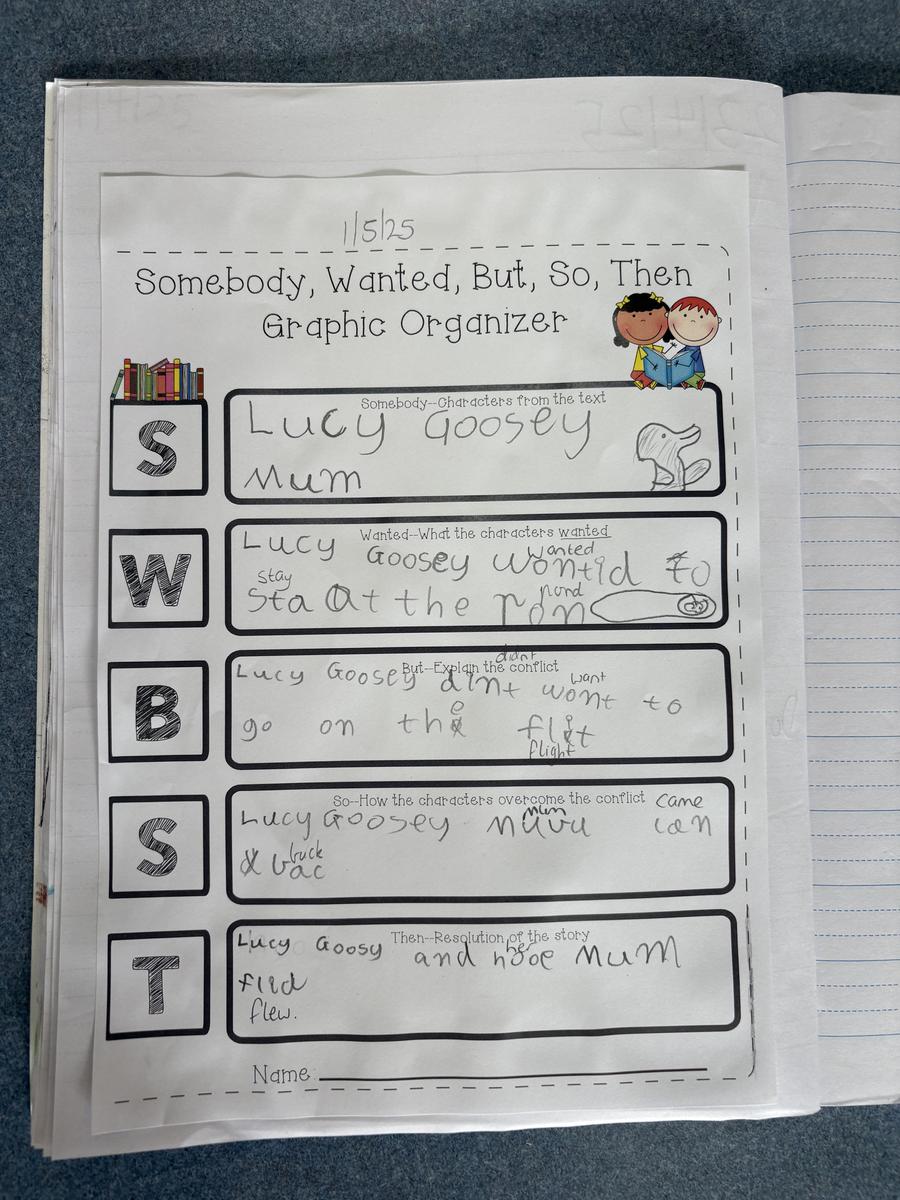 1/5/25
Somebody, Wanted, But, So, Then
Graphic Organizer
S
Somebody--Characters from the text
Lucy Goosey
Mum
W
Wanted--What the characters wanted
wanted
Lucy Goosey wontid to
stay pond
sta at the pon
B
didn't
But--Explain the conflict
want
Lucy Goosey dint wont to
e
go on the flit
flight
S
So--How the characters overcome the conflict
mum came
Lucy Goosey can
back
bac
T
Then--Resolution of the story
her
Lucy Goosy and Mum
flid
flew.
Name